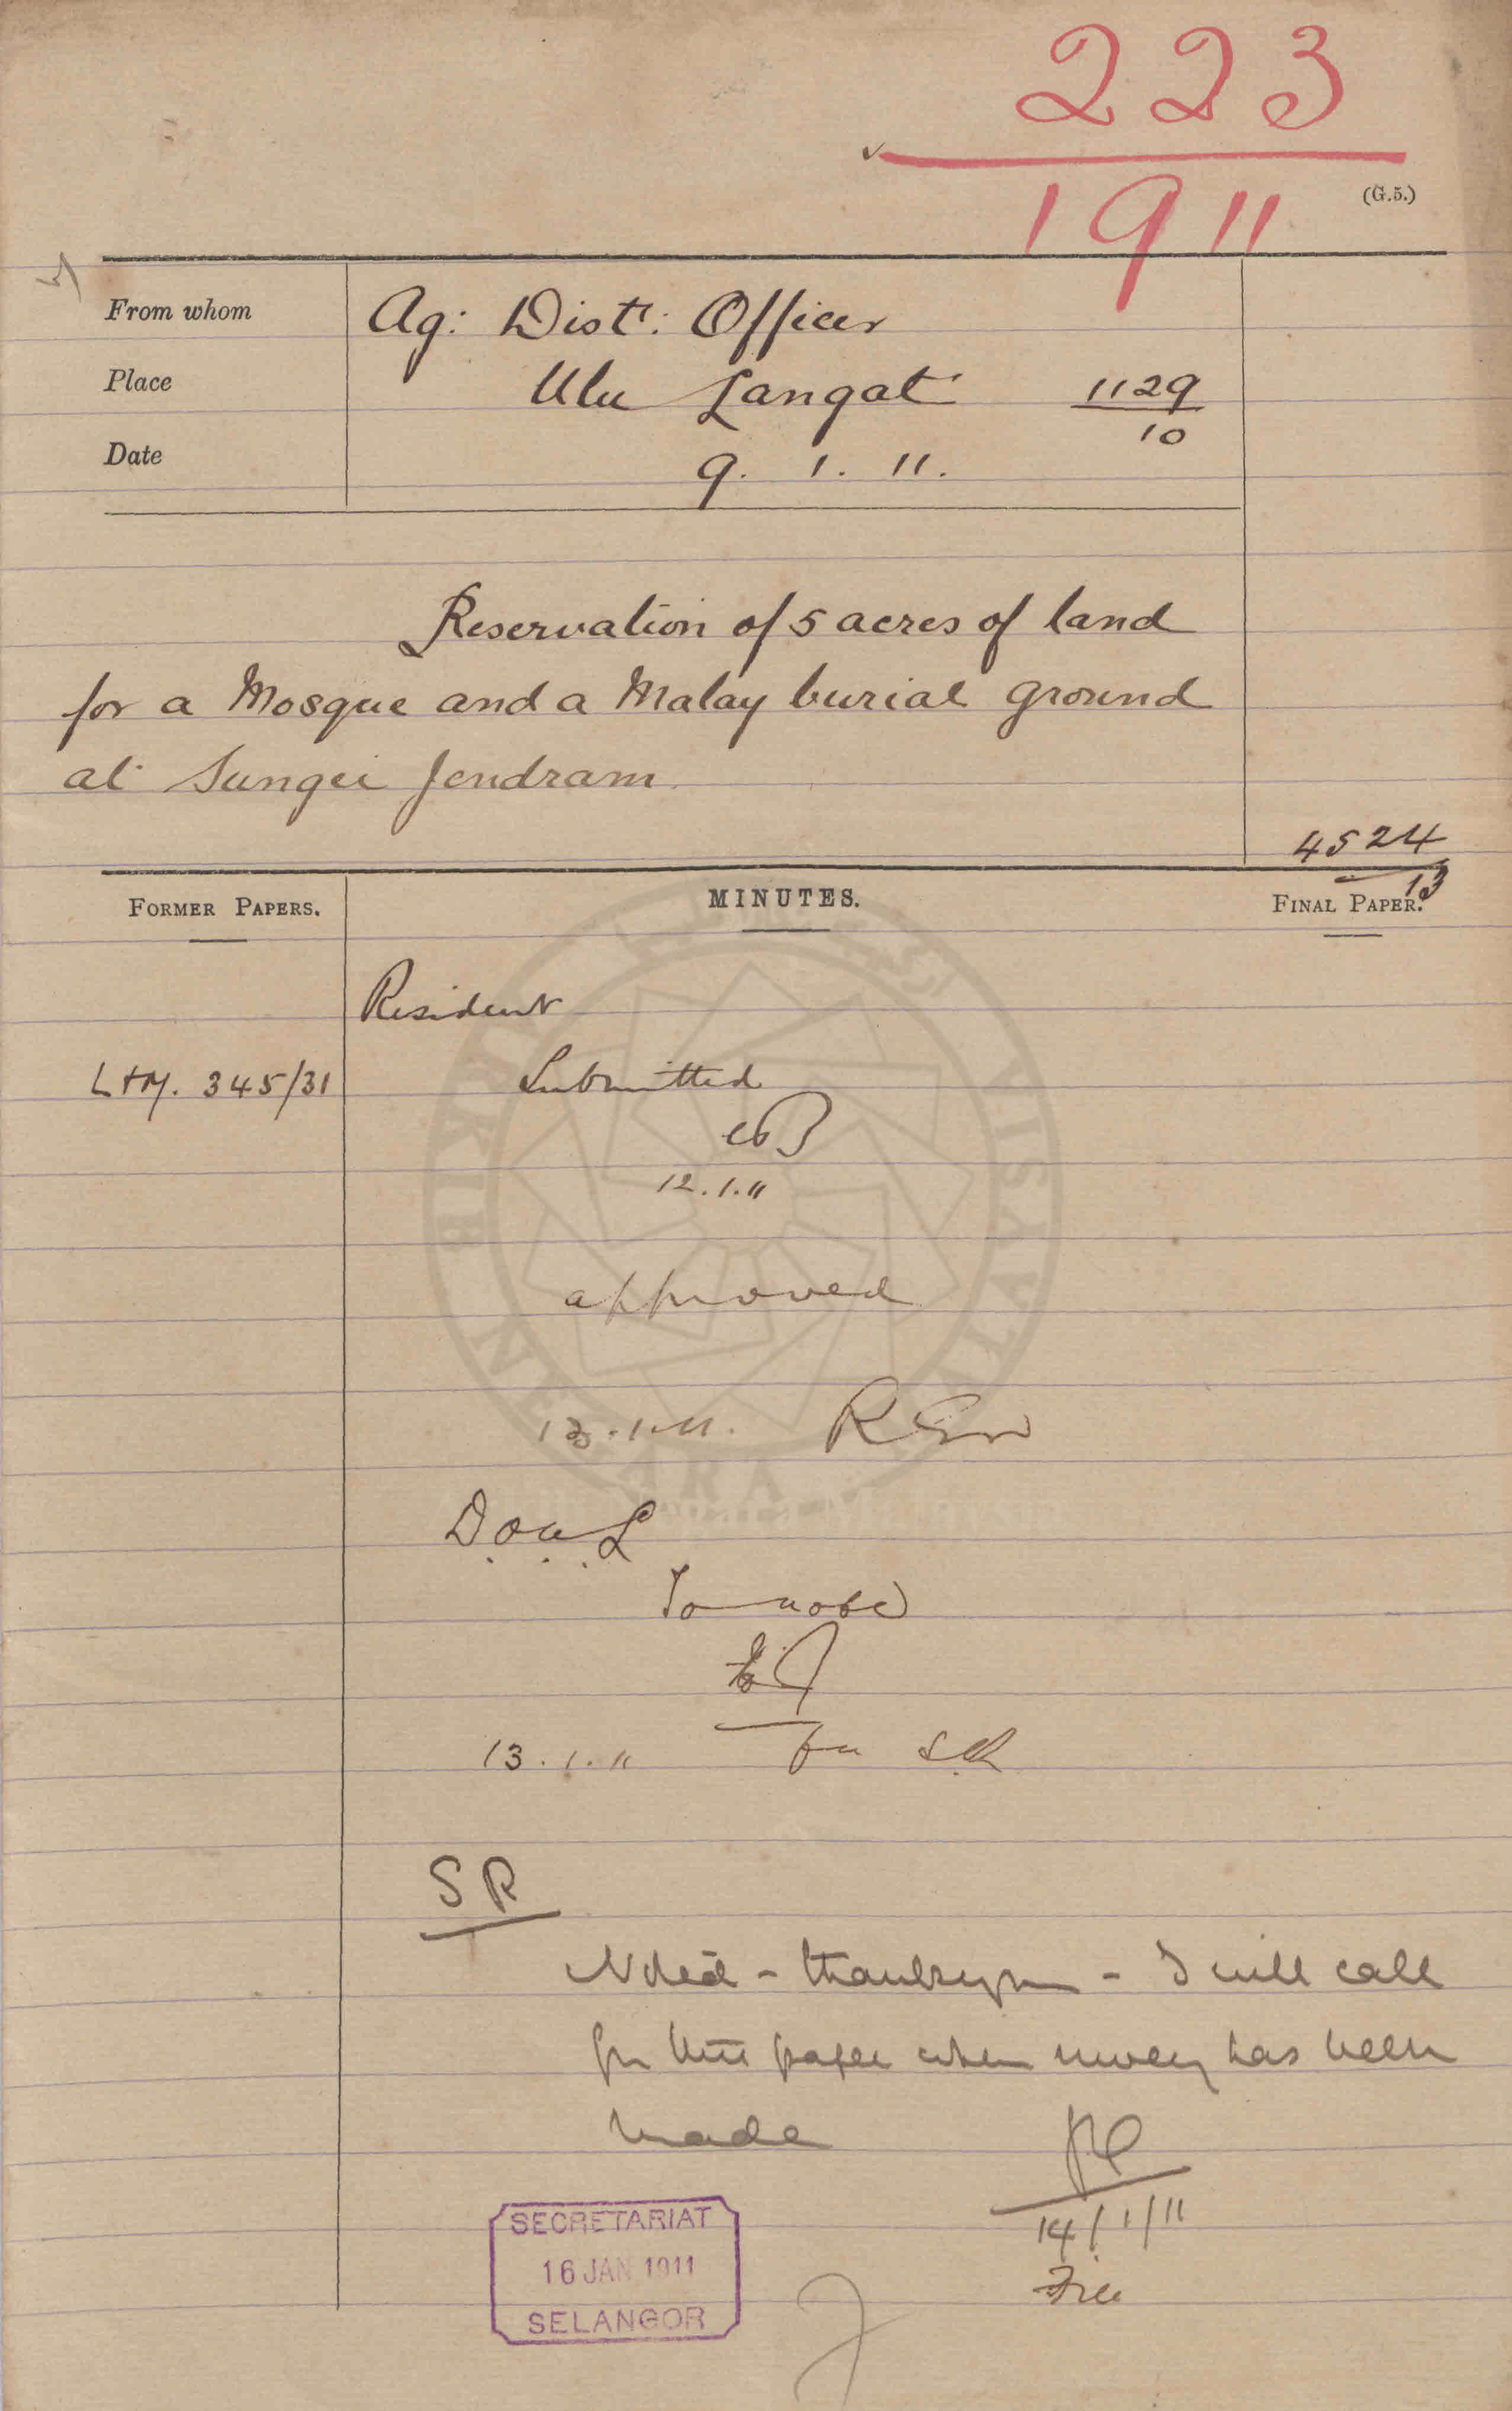 223
1911
(G.5.)
From whom
Ag: Dist: Officer
Place
Ulu Langat
1129
10
Date
9. 1. 11.
Reservation of 5 acres of land
for a Mosque and a Malay burial ground
at Sungei Jendram
4524
13
FORMER PAPERS.
MINUTES.
FINAL PAPER.
Resident
L+M. 345/31
Submitted
12.1.11
approved
13.1.11.
D o u L
To note
13.1.11
for SR
SR
Noted - thank you - I will call
for this paper when survey has been
made
14/1/11
File
SECRETARIAT
16 JAN 1911
SELANGOR